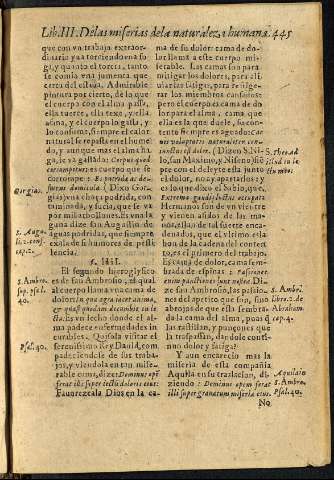 Lib. III. De las miserias de la naturaleza humana. 445
que con vn trabajo extraor-
dinario ya a torciendo a na soga,
y quanto el torcia, tanto
se comia vna jumenta que
cerca del estaua. Admirable
pintura por cierto, de lo que
el cuerpo con el alma passa,
ella tuerce, ella texe, y ella
afana, y el cuerpo lo gasta, y
lo consume, siempre el calor
natural se repasta en el humi
do, y aunque mas el alma ha-
ga, se va gastado: Corpus quod
corrumpitur; es cuerpo que se
corrompe: Es putrida ac de-
formis domicula. (Dixo Gor-
gias) vna choça podrida, con
taminada, y fucia, que se va
por mil arboliones. Es vna la
guna dize san Augustin de
aguas podridas, que siempre
exala de si humores de pesti
lencia.
§. IIII.
El segundo hieroglyfico
es de san Ambrosio, el qual
al cuerpo llama vna cama de
dolor: In qua agra iacet anima,
Es vn lecho donde el al
ma padece enfermedades in
curables. Quisola visitar el
serenissimo Rey Dauid, com-
padeciendose de sus traba-
jos, y viendola en tan mise-
rable cama, dize: Dominus opē
ferat illi super lectū doloris eius:
Fauorezcala Dios en la ca-
Gorgias.
S. Augu.
S. Ambro.
sup. psal.
40.
Psal. 40.
ma de su dolor: cama de do-
lor llama a este cuerpo mise-
rable. Las camas son para
mitigar los dolores, para ali-
uiar las fatigas, para refrige-
rar los miembros cansados:
pero el cuerpo es cama de do
lor para el alma, cama que
ella es la que duele, su con-
tento siempre es aguado:
(Dizen S. Ni-
lo, san Maximo, y Niseno) siē
pre con el deleyte esta junto
el dolor, no ay apartarlos: y
es lo que dixo el Sabio, que,
Extrema gaudij luctus occupat:
Hermanos son de vn vientre
y vienen asidos de las ma-
nos, ella es de tal suerte enca-
denada, que el vltimo esla-
bon de la cadena del conten-
to, es el primero del trabajo.
Es cama de dolor, cama sem-
brada de espinas:
Di-
ze san Ambrosio, las passio-
nes del apetito que son, sino
abrojos de que esta sembra
da la cama del alma, pues q̃
las rastillan, y punçones que
la traspassan, dandole conti-
nuo dolor y fatiga?
Y aun encarecio mas la
miseria de esta compañia
Aquila en su traslacion, di
ziendo: Dominus opem ferat
illi super grauatum miseria eius.
No
S. Ambro.
libro 2. de
Abraham
cap. 4.
Aquila in
S. Ambro.
Psal. 40.